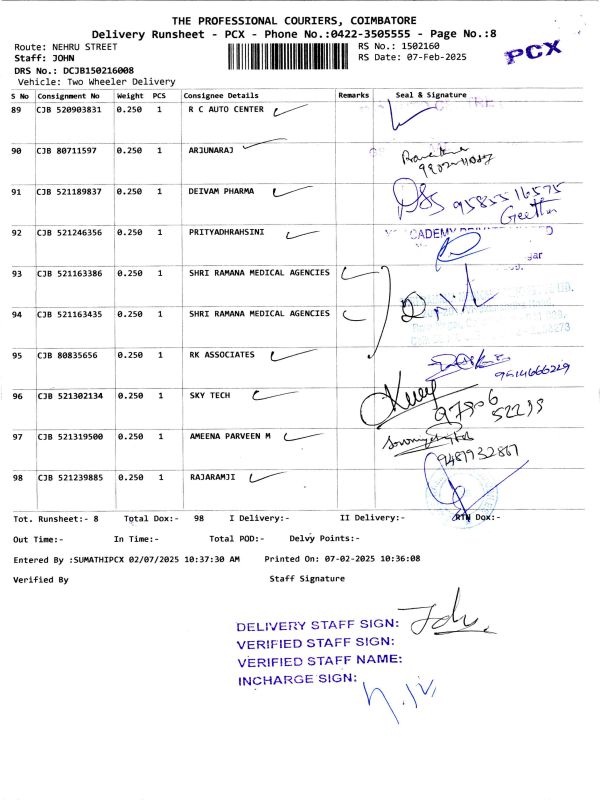 THE PROFESSIONAL COURIERS, COIMBATORE
Delivery Runsheet - PCX - Phone No.:0422-3505555 - Page No.:8
Route: NEHRU STREET RS No.: 1502160
Staff: JOHN RS Date: 07-Feb-2025
PCX
DRS No.: DCJB150216008
Vehicle: Two Wheeler Delivery
S No Consignment No Weight PCS Consignee Details Remarks Seal & Signature
89 CJB 520903831 0.250 1 R C AUTO CENTER
90 CJB 80711597 0.250 1 ARJUNARAJ
91 CJB 521189837 0.250 1 DEIVAM PHARMA 9585516575
Geetha
92 CJB 521246356 0.250 1 PRITYADHRAHSINI
93 CJB 521163386 0.250 1 SHRI RAMANA MEDICAL AGENCIES
94 CJB 521163435 0.250 1 SHRI RAMANA MEDICAL AGENCIES
95 CJB 80835656 0.250 1 RK ASSOCIATES
96 CJB 521302134 0.250 1 SKY TECH
97 CJB 521319500 0.250 1 AMEENA PARVEEN M
98 CJB 521239885 0.250 1 RAJARAMJI
Tot. Runsheet:- 8 Total Dox:- 98 I Delivery:- II Delivery:- RTN Dox:-
Out Time:- In Time:- Total POD:- Delvy Points:-
Entered By :SUMATHIPCX 02/07/2025 10:37:30 AM Printed On: 07-02-2025 10:36:08
Verified By Staff Signature
DELIVERY STAFF SIGN:
VERIFIED STAFF SIGN:
VERIFIED STAFF NAME:
INCHARGE SIGN: